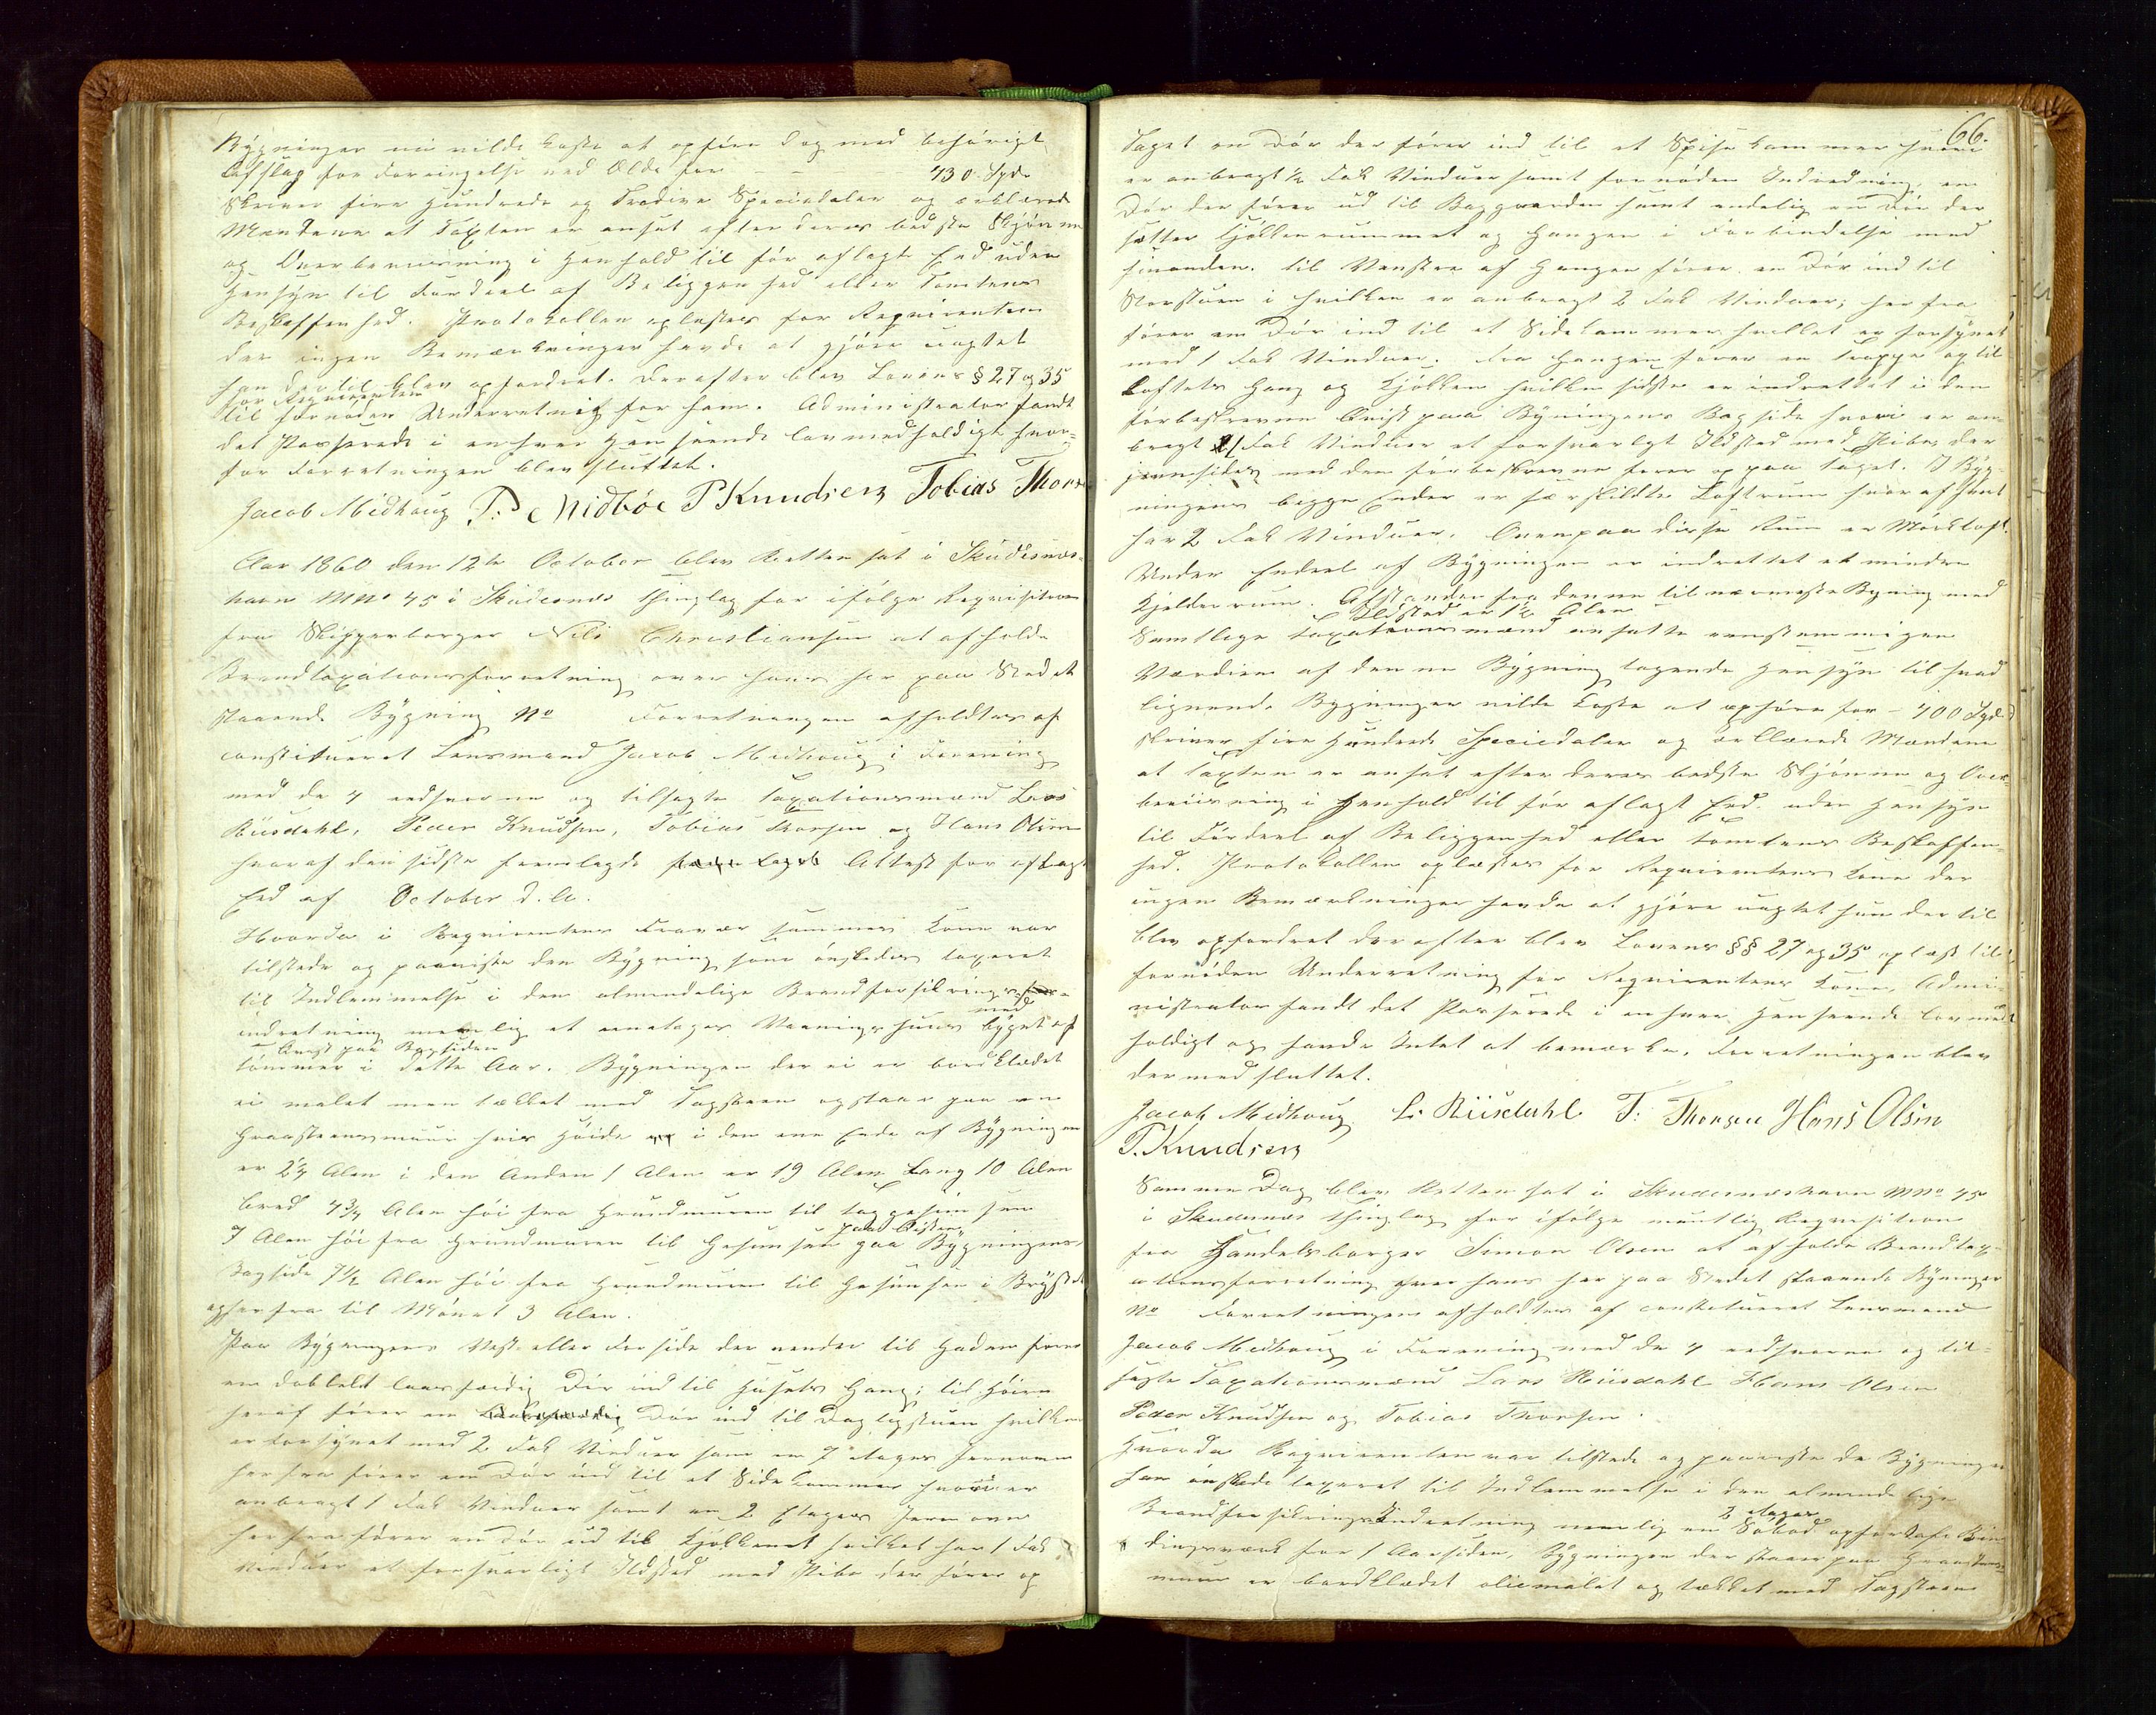 Bygninger nu vilde koste at opføre dog med behørigt
Afslag for Forringelse ved Ælde for - - - 430 Spd.
Skriver fire Hundrede og Tredive Speciedaler og erklærede
Mændene at Taxten er ansat efter deres bedste Skjønne
og Overbeviisning i Henhold til før aflagte Eed uden
Hensyn til Fordeel af Beliggenhed eller Tomtens
Beskaffenhed. Protokollen oplæstes for Requirenten
der ingen Bemærkninger havde at gjøre uagtet
han dertil blev opfordret. Derefter blev Lovens § 27 og 35
for Requirenten
til fornøden Underretning for ham. Administrator fandt
det Passerede i enhver Henseende lovmedholdigt hvor-
for Forretningen blev sluttet.
Jacob Midhoug P. Midbøe P Knudsen Tobias Thors
Aar 1860 den 12te October blev Retten sat i Skudesnæs-
havn MNo 45 i Skudesnæs Thinglag for ifølge Requisition
fra Skipperborger Nils Christiansen at afholde
Brandtaxationsforretning over hans her paa Stedet
staaende Bygning No Forretningen afholdtes af
constitueret Lensmand Jacob Midhoug i Forening
med de 4 eedsvorne og tilsagte Taxationsmænd Lars
Riisdahl, Peder Knudsen, Tobias Thorsen og Hans Olsen
hvoraf den sidste fremlagde Attest for aflagt
Eed af October d. A.
Hvorda i Requirentens Fravær sammes Kone var
tilstede og paaviste den Bygning som ønskedes taxeret
til Indlemmelse i den almindelige Brandforsikrings-
indretning nemlig et eenetages Vaaningshuus bygget af
med
Qvist paa Bagsiden
Tømmer i dette Aar. Bygningen der ei er bordklædet
ei malet men tækket med Tagsteen og staar paa en
Graasteensmuur hvis Høide i den ene Ende af Bygningen
er 2¼ Alen i den Anden 1 Alen er 19 Alen Lang 10 Alen
bred 4¾ Alen høi fra Grundmuren til Taggesimsen
7 Alen høi fra Grundmuren til Gesimsen paa Bygningens
paa Qvisten
Bagside 7½ Alen høi fra Grundmuren til Gesimsen i Brystet
og herfra til Mønet 3 Alen.
Paa Bygningens Vest- eller Forside der vender til Gaden fører
en dobbelt laasfærdig Dør ind til Husets Gang; til Høire
heraf fører en Dør ind til Dagligstuen hvilken
er forsynet med 2 Fak Vinduer samt en 2 etages Jernovn
herfra fører en Dør ind til et Sidekammer hvori er
anbragt 1 Fak Vinduer samt en 2 Etages Jernovn
herfra fører en Dør ud til Kjøkkenet hvilket har 1 Fak
Vinduer et forsvarligt Ildsted med Pibe der fører op
66.
Taget en Dør der fører ind til et Spisekammer hvori
er anbragt ½ Fak Vinduer samt fornøden Indredning, en
Dør der fører ud til Baggaarden samt endelig en Dør der
sætter Kjøkkenrummet og Gangen i Forbindelse med
hinanden. til Venstre af Gangen fører en Dør ind til
Storstuen i hvilken er anbragt 2 Fak Vinduer; herfra
fører en Dør ind til et Sidekammer hvilket er forsynet
med 1 Fak Vinduer. Fra Gangen fører en Trappe op til
Loftets Gang og Kjøkken hvilke sidste er indrettet i den
førbeskrevne Qvist paa Bygningens Bagside hvori er an-
bragt 1 Fak Vinduer et forsvarligt Ildsted med Pibe, der
jævnsides med den førbeskrevne fører op paa Taget. I Byg-
ningens begge Ender er særskildte Loftrum hvoraf hvert
har 2 Fak Vinduer. Ovenpaa disse Rum er Mørkloft.
Under Endeel af Bygningen er indrettet et mindre
Kjelderrum. Afstanden fra denne til nærmeste Bygning med
Ildsted er 1½ Alen
Samtlige Taxationsmænd ansatte eenstemmigen
Værdien af denne Bygning tagende Hensyn til hvad
lignende Bygninger vilde koste at opføre for - 400 Spd
skriver fire Hundrede Speciedaler og erklærede Mændene
at Taxten er ansat efter deres bedste Skjønne og Over-
beviisning i Henhold til før aflagt Eed uden Hensyn
til Fordeel af Beliggenhed eller Tomtens Beskaffen-
hed. Protokollen oplæstes for Requirentens Kone der
ingen Bemærkninger havde at gjøre uagtet hun dertil
blev opfordret derefter blev Lovens §§ 27 og 35 oplæst til
fornøden Underretning for Requirentens Kone. Admi-
nistrator fandt det Passerede i enhver Henseende lovmed-
holdigt og havde Intet at bemærke. Forretningen blev
dermed sluttet.
Jacob Midhoug L. Riisdahl T. Thorsen Hans Olsen
P. Knudsen
Samme Dag blev Retten sat i Skudesnæshavn MNo 45
i Skudesnæs Thinglag for ifølge mundtlig Requisition
fra Handelsborger Simon Olsen at afholde Brandtax-
ationsforretning over hans her paa Stedet staaende Bygninger
No Forretningen afholdtes af constitueret Lensmand
Jacob Midhoug i Forening med de 4 eedsvorne og til-
sagte Taxationsmænd Lars Riisdahl Hans Olsen
Peder Knudsen og Tobias Thorsen.
Hvorda Requirenten var tilstede og paaviste de Bygninger
han ønskede taxeret til Indlemmelse i den almindelige
Brandforsikrings Indretning nemlig en Søbod opført af Bin-
2 etages
dingsværk for 1 Aar siden, Bygningen der staaer paa Graasteens-
muur er bordklædet oliemalet og tækket med Tagsteen